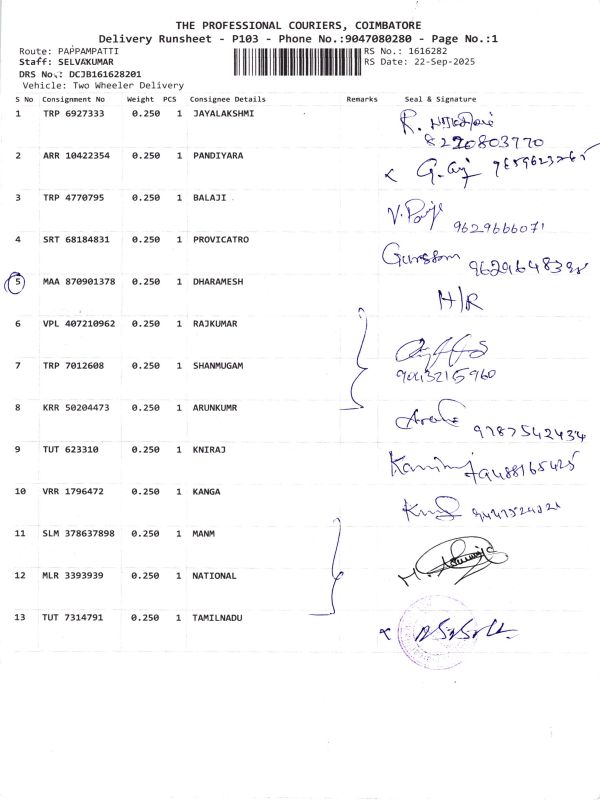 THE PROFESSIONAL COURIERS, COIMBATORE
Delivery Runsheet - P103 - Phone No.:9047080280 - Page No.:1
Route: PAPPAMPATTI RS No.: 1616282
Staff: SELVAKUMAR RS Date: 22-Sep-2025
DRS No.: DCJB161628201
Vehicle: Two Wheeler Delivery
S No Consignment No Weight PCS Consignee Details Remarks Seal & Signature
1 TRP 6927333 0.250 1 JAYALAKSHMI R.
8220803770
2 ARR 10422354 0.250 1 PANDIYARA
3 TRP 4770795 0.250 1 BALAJI
9629666071
4 SRT 68184831 0.250 1 PROVICATRO
5 MAA 870901378 0.250 1 DHARAMESH H/R
6 VPL 407210962 0.250 1 RAJKUMAR
7 TRP 7012608 0.250 1 SHANMUGAM
9043215960
8 KRR 50204473 0.250 1 ARUNKUMR
9787542434
9 TUT 623310 0.250 1 KNIRAJ
10 VRR 1796472 0.250 1 KANGA
11 SLM 378637898 0.250 1 MANM
12 MLR 3393939 0.250 1 NATIONAL
13 TUT 7314791 0.250 1 TAMILNADU